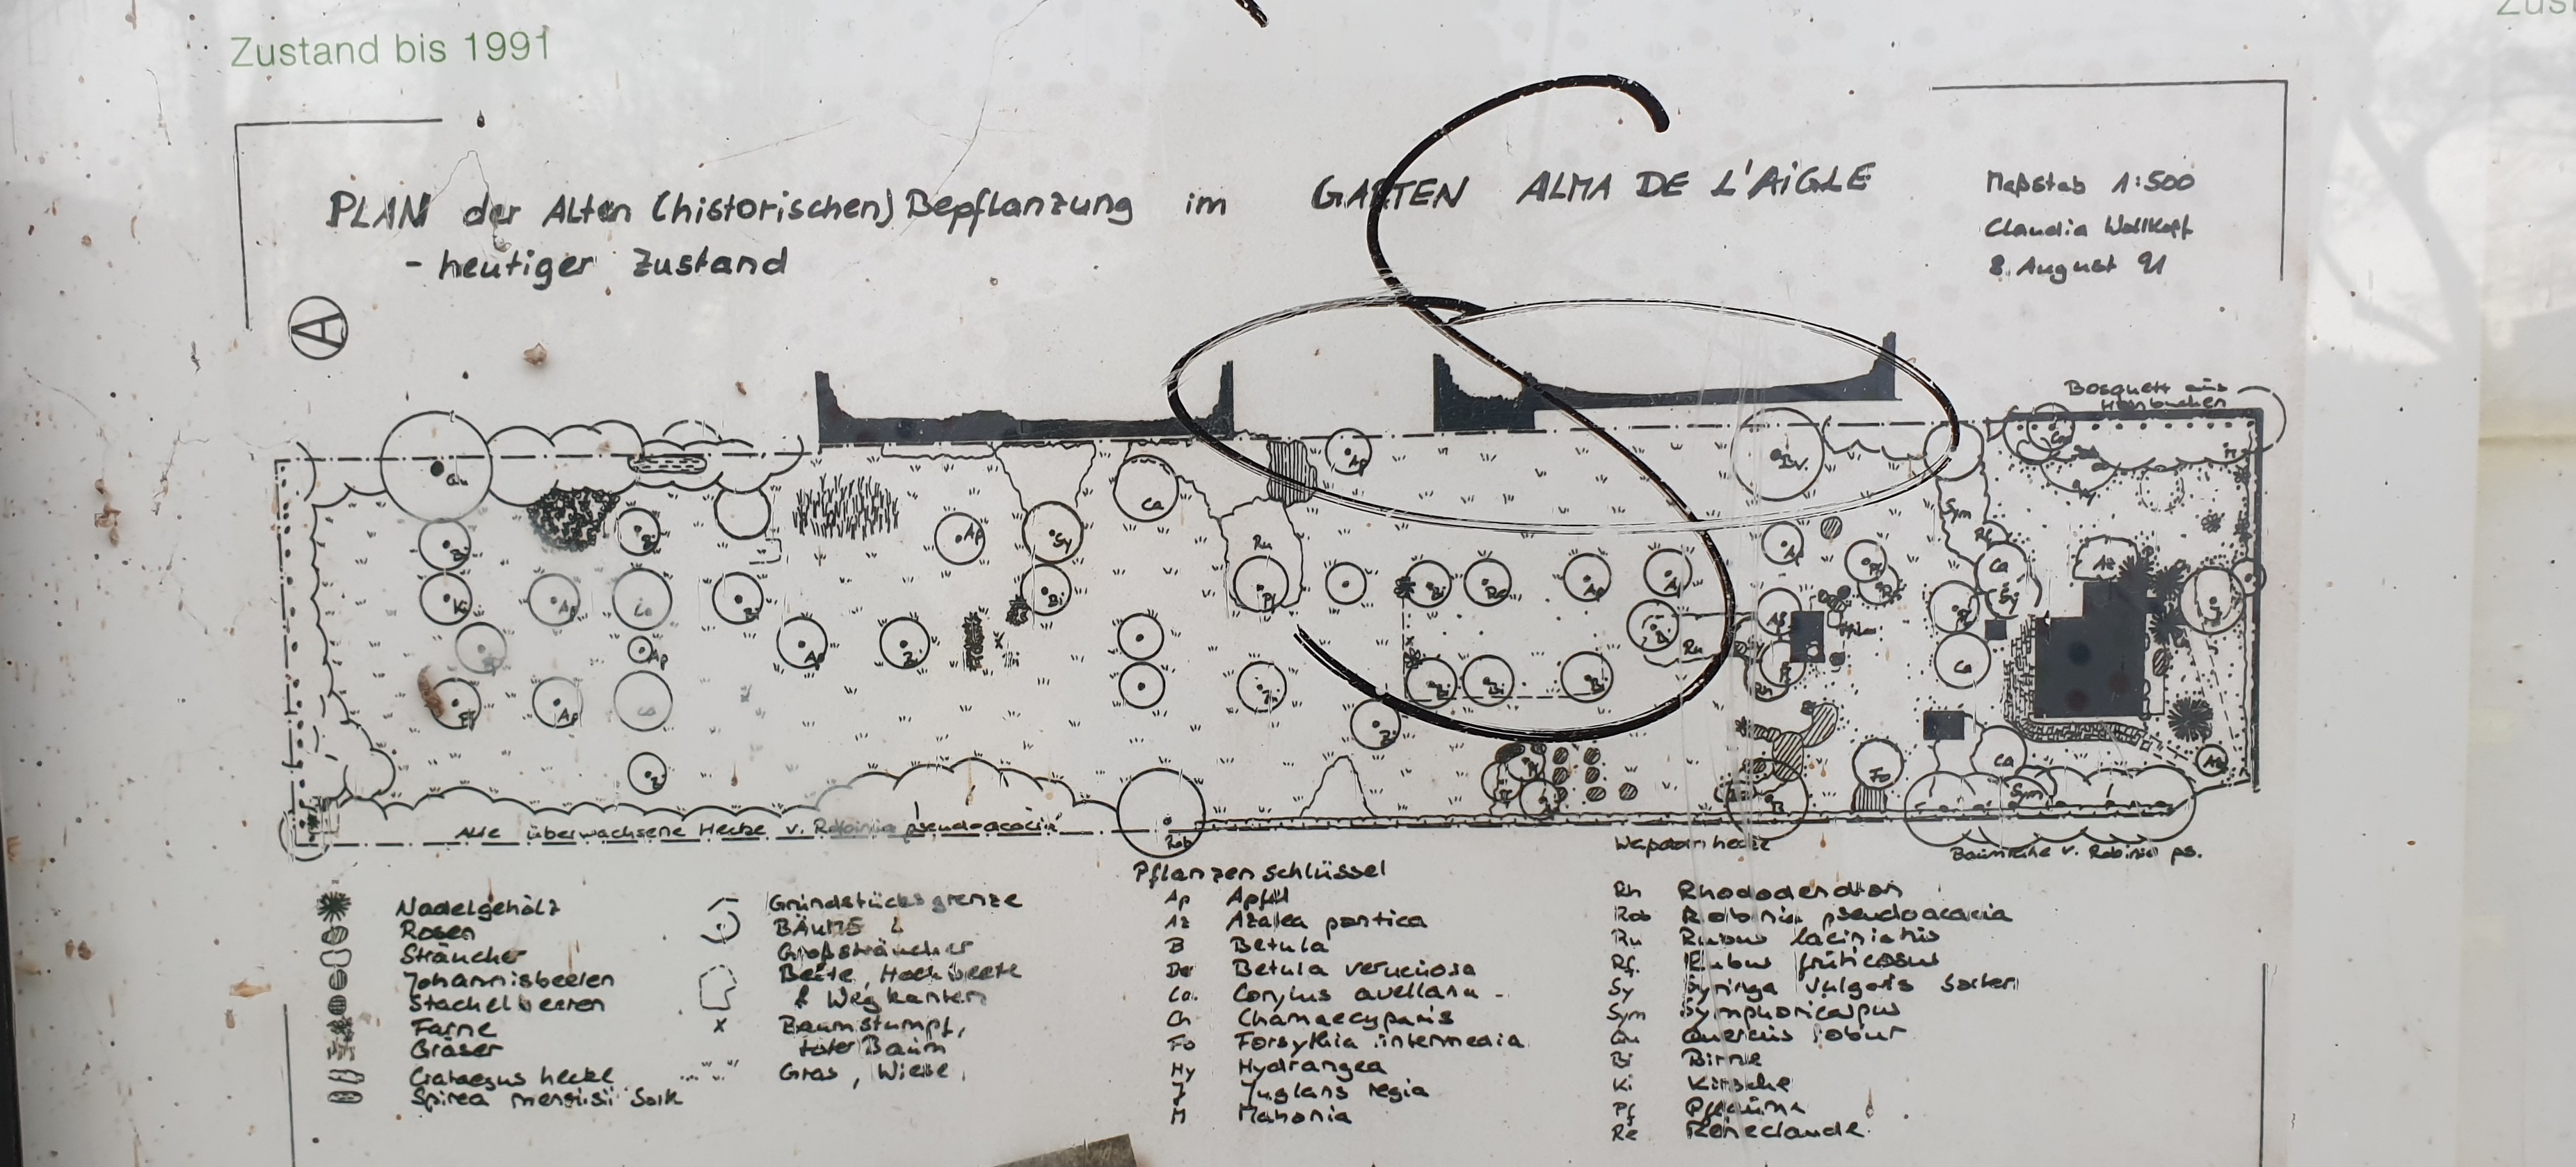 Zustand bis 1991
PLAN der Alten (historischen) Bepflanzung im GARTEN ALMA DE L'AIGLE
- heutiger Zustand
Maßstab 1:500
Claudia Wollkopf
8. August 91
A
Bosquett aus
Hainbuchen
Alte überwachsene Hecke v. Robinia pseudoacacia
Rob
Weißdornhecke
Baumreihe v. Robinia ps.
Nadelgehölz
Rosen
Sträucher
Johannisbeeren
Stachelbeeren
Farne
Gräser
Crataegus hecke
Spirea
Grundstücksgrenze
BÄUME &
Großsträucher
Beete, Hochbeete
& Wegkanten
x Baumstumpf,
toter Baum
Gras, Wiese
Pflanzenschlüssel
Ap Apfel
Az Azalea pontica
B Betula
Betula veruciosa
Co. Corylus avellana
Ch Chamaecyparis
Fo Forsythia intermedia
Hy Hydrangea
J Juglans regia
M Mahonia
Rh Rhododendron
Rob Robinia pseudoacacia
Ru Rubus laciniatus
Rf. Rubus fruticosus
Sy Syringa vulgaris Sorten
Sym Symphoricarpus
Qu Quercus robur
Bi Birne
Ki Kirsche
Pf Pflaume
Re Reneclaude